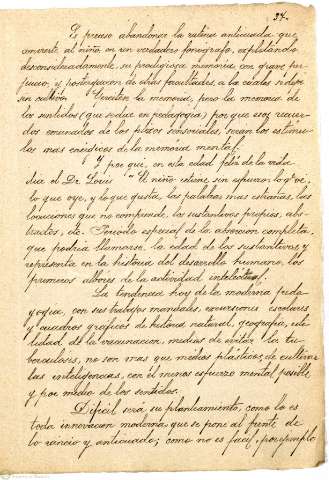 34.
Es preciso abandonar la rutina anticuada que
convierte al niño en un verdadero fonógrafo, explotándo
desconsideradamente, su prodigiosa memoria con grave per
juicio, y postergacion de otras facultades, a la cuales se dejan
sin cultivo. Ejercitese la memoria, pero la memoria de
los sentidos (que se dice en pedagogia) por que esos recuer
dos emanados de los focos sensoriales, sean los estimu
los mas erídicos de la memoria mental.
Y por qué, en esta edad feliz de la vida
dice el Dr. Louis "El niño retiene sin esfuerzo lo q. ve,
lo que oye, y lo que gusta, las palabras mas estrañas, las
locuciones que no comprende, los sustantivos propios, abs
tractos, etc. Periodo especial de la absorcion completa,
que podria llamarse, la edad de los sustantivos y
representa en la historia del desarrollo humano, los
primeros albores de la actividad intelectual.
La tendencia hoy de la moderna peda
gogia, con sus trabajos manuales, excursiones escolares
y cuadros gráficos de historia natural, geografia, uti
lidad de la vacunacion, medios de evitar la tu
berculosis, no son mas que medios plásticos, de cultivar
las inteligencias, con el menos esfuerzo mental posible,
y por medio de los sentidos.
Dificil será su planteamiento, como lo es
toda innovacion moderna que se pone al frente de
lo rancio y anticuado; como no es facil, por ejemplo